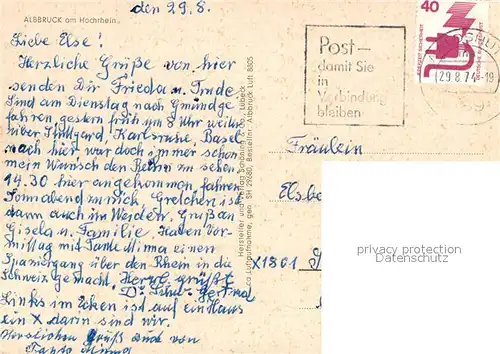 ALBBRUCK am Hochrhein
den 29.8.
Liebe Else!
Herzliche Grüße von hier
senden Dir Frieda u. Trude
Sind am Dienstag nach Gmünd ge
fahren, gestern früh um 8 Uhr weiter
über Stuttgard, Karlsruhe, Basel
nach hier war doch immer schon
mein Wunsch den Rhein zu sehen.
14.30 hier angekommen, fahren
Sonnabend zurück, Gretchen ist
dann auch im Weiden. Gruß an
Gisela u. Familie. Haben Vor-
mittag mit Tante Minna einen
Spaziergang über den Rhein in die
Schweiz gemacht. Herzl. grüßt
Gertrud
Links im Ecken ist auf ein Haus
ein X darin sind wir.
Herzlichen Gruß auch von
Tante Minna
Hersteller und Verlag Schöning & Co., Lübeck
ca Luftaufnahme, gen. SH 29680, Bestellnr. Albbruck Luft 8805
Post-
damit Sie
in
Verbindung
bleiben
40
DEUTSCHE BUNDESPOST
29.8.74-19
Fräulein
Elsbe
X1801
privacy protection
Datenschutz